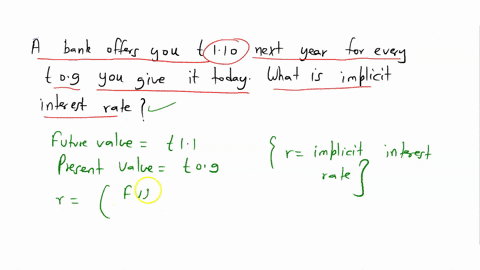 A bank offers you t 1.10 next year for every
t 0.9 you give it today. What is implicit
interest rate?
Future value = t 1.1
Present value = t 0.9
{ r = implicit interest
rate }
r = ( F